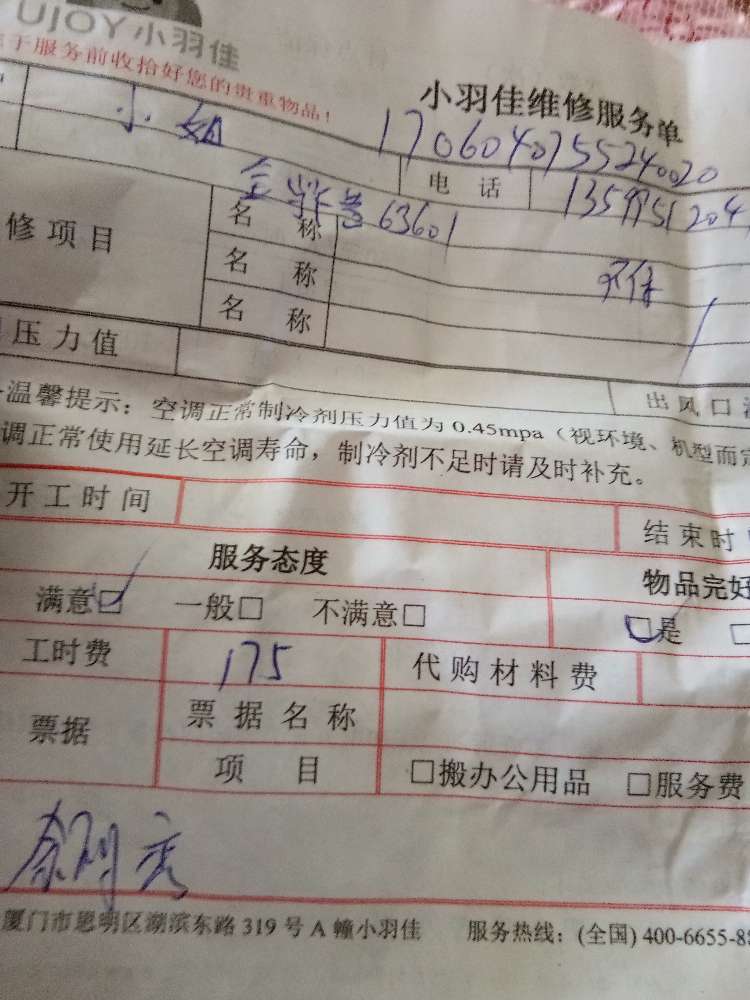 UJOY小羽佳
于服务前收拾好您的贵重物品!
小羽佳维修服务单
小姐
1706040755240020
电 话 1359951204
63601
修项目 名 称
名 称
名 称
压力值
出风口
温馨提示：空调正常制冷剂压力值为 0.45mpa（视环境、机型而定
调正常使用延长空调寿命，制冷剂不足时请及时补充。
开工时间
结束时
服务态度 物品完好
满意□ 一般□ 不满意□ □是 □
工时费 175 代购材料费
票据 票据名称
项 目 □搬办公用品 □服务费
厦门市思明区湖滨东路 319 号 A 幢小羽佳 服务热线：(全国) 400-6655-88